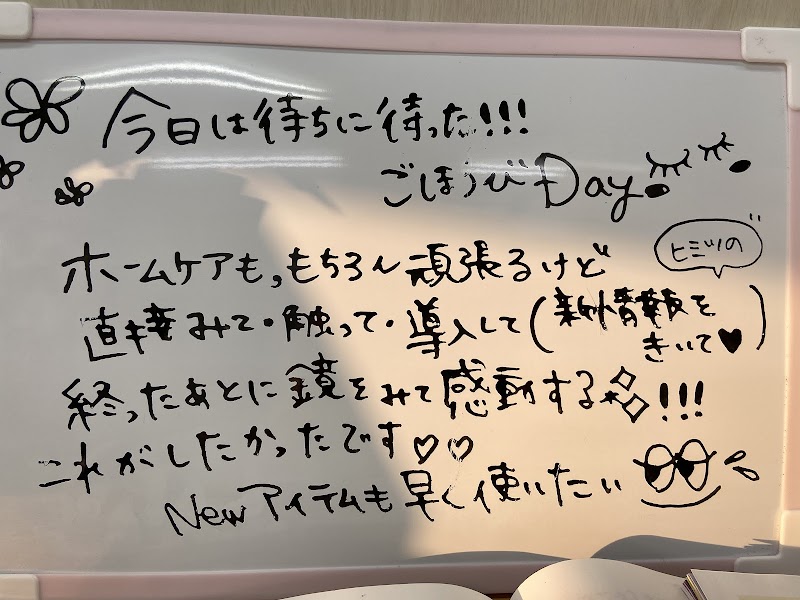 今日は待ちに待った!!!
ごほうびDay
ホームケアも,もちろん頑張るけど
ヒミツの
直接みて・触って・導入して(新情報を
きいて♥)
終ったあとに鏡をみて感動する!!!
これがしたかったです♡♡
Newアイテムも早く使いたい